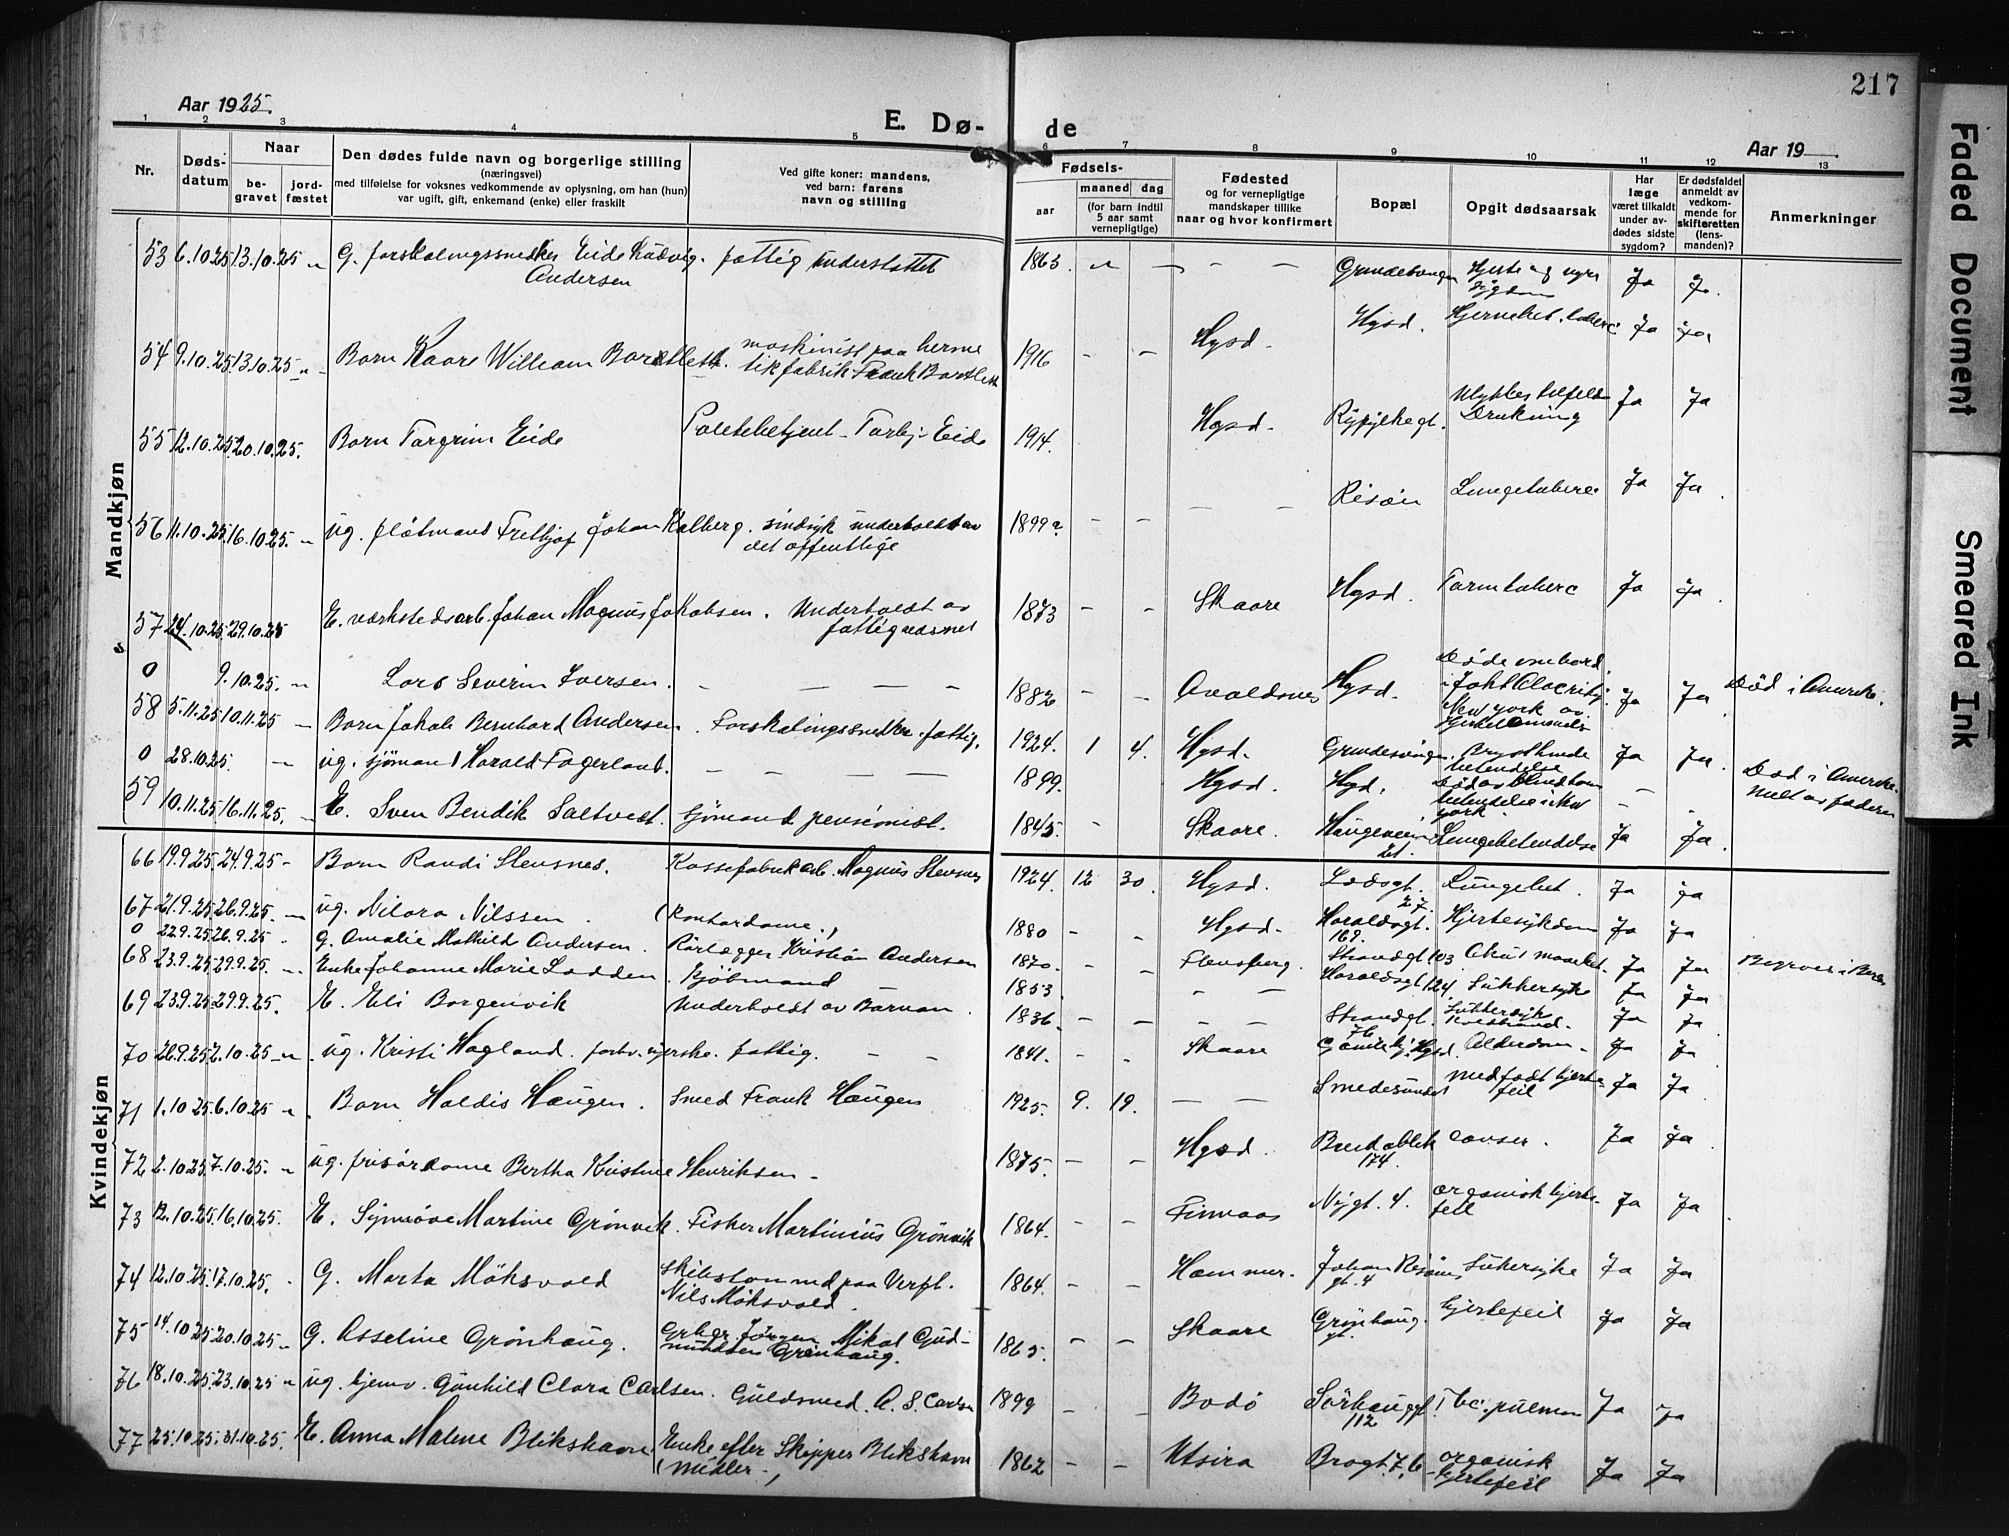 217
Aar 1925.
E. Dø- de
Aar 19
1 2 3 4 5 6 7 8 9 10 11 12 13
Nr.
Døds-
datum
Naar
be-
gravet
jord-
fæstet
Den dødes fulde navn og borgerlige stilling
(næringsvei)
med tilføielse for voksnes vedkommende av oplysning, om han (hun)
var ugift, gift, enkemand (enke) eller fraskilt
Ved gifte koner: mandens,
ved barn: farens
navn og stilling
Fødsels-
aar
maaned dag
(for barn indtil
5 aar samt
vernepligtige)
Fødested
og for vernepligtige
mandskaper tillike
naar og hvor konfirmert
Bopæl
Opgit dødsaarsak
Har
læge
været tilkaldt
under av-
dødes sidste
sygdom?
Er dødsfaldet
anmeldt av
vedkom-
mende for
skifteretten
(lens-
manden)?
Anmerkninger
Mandkjøn
53 6.10.25 13.10.25 G. forskalingssnedker Eide Ludvig Andersen fattig understøttet 1863 Ja Ja
54 9.10.25 13.10.25 Barn Kaare William Bartlett. maskinist paa herme
tikfabrik Frank Bartlett 1916 Hgsd. Hgsd. Ja Ja
55 12.10.25 20.10.25. Barn Torgrim Eide Politibetjent Torbj. Eide 1914. Hgsd. Ulykkestilfelde Drukning Ja Ja
56 11.10.25 16.10.25. ug. Johan Kalberg. sindsyk underholdt av
det offentlige 1899 Risøen Lungetuberc Ja Ja
57 24.10.25 29.10.25 E. værkstedsarb. Johan Magnus Jakobsen. Underholdt av
fattigvæsnet 1873 Skaare Hgsd. Tarmtuberc Ja Ja
0 9.10.25. Lars Severin Iversen. 1882 Avaldsnes Hgsd. New York Ja Ja Død i Amerika.
58 5.11.25 10.11.25 Barn Jakob Bernhard Andersen Forskalingssnedker fattig. 1924. 1 4. Hgsd. Brysthinde
betendelse Ja Ja
0 28.10.25. ug. sjømand Harald Fagerland. 1899. Hgsd. Hgd. Død i Amerika.
Melt av faderen
59 10.11.25 16.11.25. E. Sven Bendik Saltvedt. sjømand pensionist. 1845. Skaare. Haugeveien
21. Lungebetendelse Ja Ja
Kvindekjøn
66 19.9.25 24.9.25 Barn Randi Stensnes. Kassefabrik arb. Magnus Stensnes 1924. 12 30. Hgsd. Ladegt.
27. Lungebet. Ja Ja
67 21.9.25 26.9.25. ug. Nilara Nilssen. (kontordame.) 1880 Hgsd. Haraldsgt.
169. Hjertesykdom Ja Ja
0 22.9.25 26.9.25 G. Amalie Mathild Andersen. Rørlægger Kristian Andersen 1870. Flensberg. Strandgt 103 Ja Ja
68 23.9.25 29.9.25. Enke Johanne Marie Lodden Kjøbmand 1853 Haraldsgt 124. Sukkersyke Ja Ja
69 23.9.25 29.9.25. E. Eli Borgenvik Underholdt av Barnan. 1836. Strandgt.
76 Sukkersyk
Koldbrand. Ja Ja
70 26.9.25 2.10.25 ug. Kristi Hagland. forhv. syerske. fattig. 1841. Skaare Gamlehj. Hgsd. Alderdom Ja Ja
71 1.10.25 6.10.25 Barn Haldis Haugen. Smed Frank Haugen 1925. 9. 19. Smedesundet medfødt hjerte
feil Ja Ja
72 2.10.25 7.10.25. ug. frisørdame Bertha Kristine Henriksen 1875. Hgsd. Breidablik
174. cancer. Ja Ja
73 12.10.25 16.10.25. E. Synnøve Martine Grønvik. Fisker Martinius Grønvik 1864. Finnaas Nygt. 4. organisk hjerte
feil Ja Ja
74 12.10.25 17.10.25. G. Marta Møksvold skibstømmd paa Verft.
Nils Møksvold. 1864. Hammer. Johan Risøens
gt. 4 Sukersyke Ja Ja
75 14.10.25 20.10.25 G. Asseline Grønhaug. Grbgr. Jørgen Mikal Gud-
mundsen Grønhaug. 1865. Skaare Grønhaug
gt. hjertefeil Ja Ja
76 18.10.25 23.10.25 ug. hjemv. Gunhild Clara Carlsen. Guldsmed. A. S. Carlsen 1899 Bodø Sørhauggt.
112 Tbc. pulmon Ja Ja
77 25.10.25. 31.10.25. E. Anna Malene Blikshavn. Enke efter Skipper Blikshavn
(Midler.) 1862 Utsira Brogt. 7, b organisk
hjertefeil Ja Ja
Faded Document
Smeared Ink